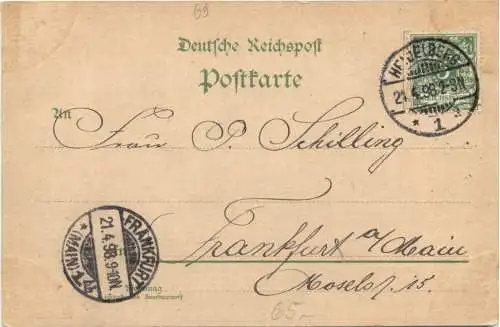 69
Deutsche Reichspost
Postkarte
HEIDELBERG
21.4.98.2-3N.
* 1 a
An
Frau P. Schilling
FRANKFURT
21.4.98.9-10N.
(MAIN) 1 *
in
Frankfurt a/Main
Moselstr. 15.
Wohnung
(Straße und Hausnummer)
65.-